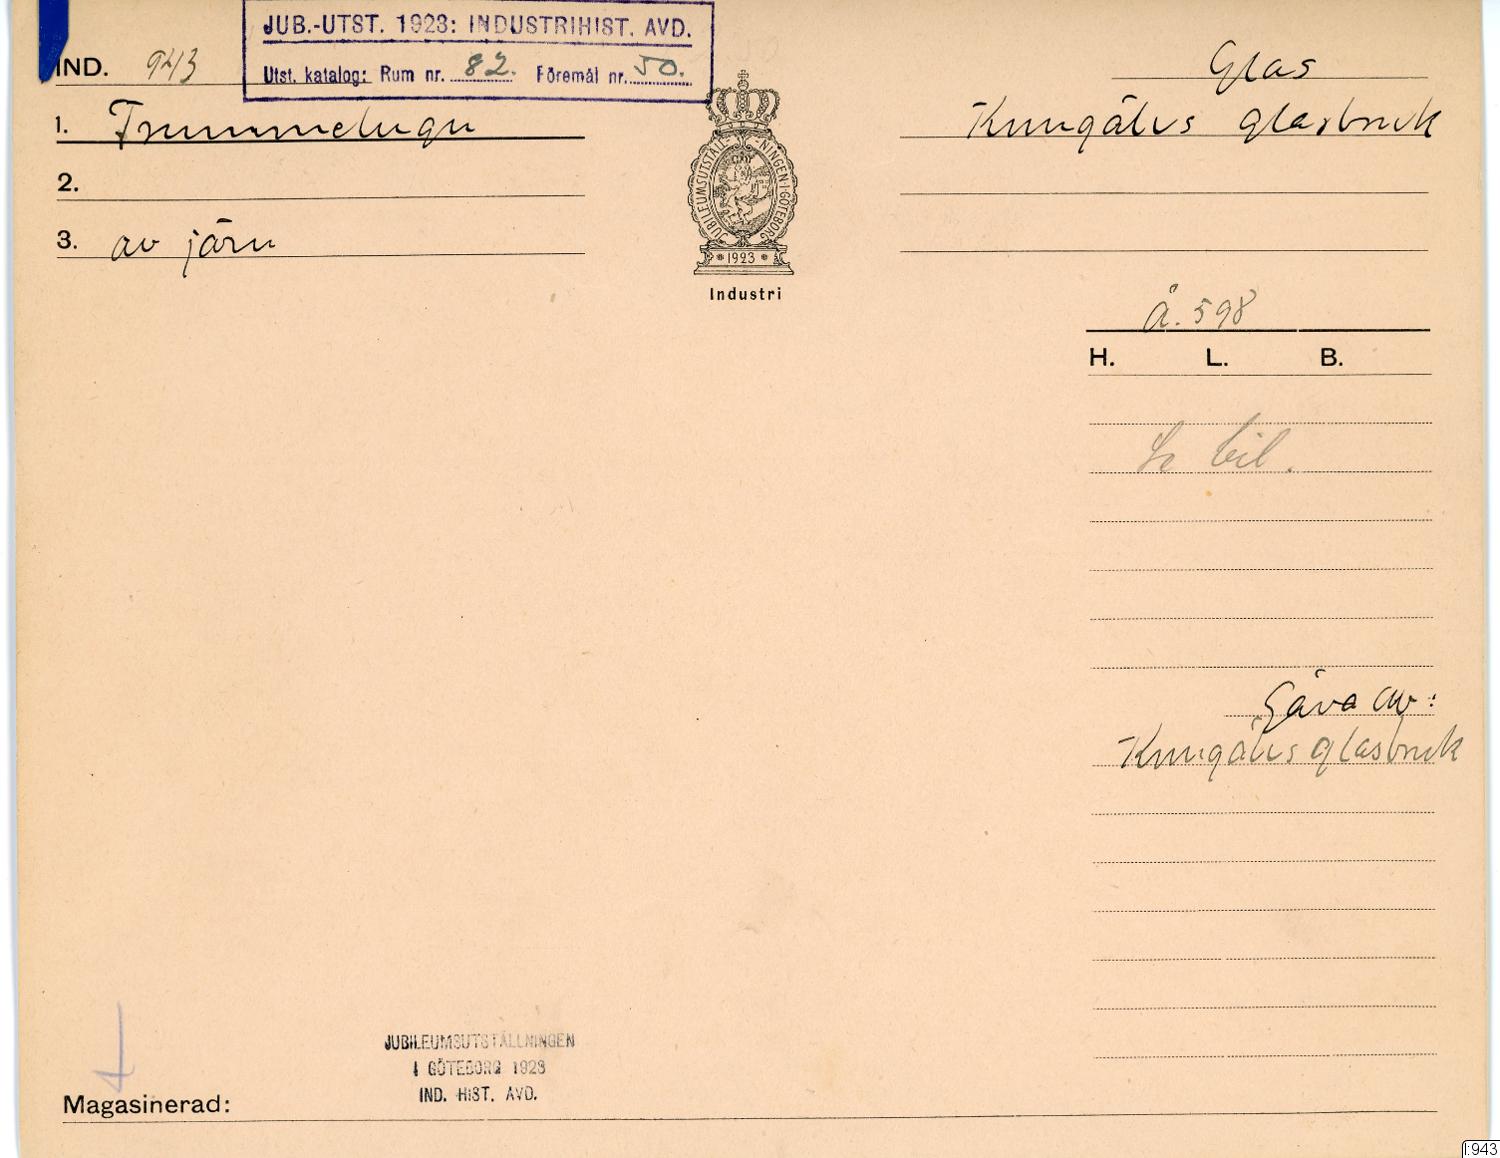 JUB.-UTST. 1923: INDUSTRIHIST. AVD.
Utst. katalog: Rum nr. 82. Föremål nr. 50.
IND. 943
Glas
1. Trummelugn
Kungälvs glasbruk
2.
3. av järn
JUBILEUMSUTSTÄLLNINGEN I GÖTEBORG
1923
Industri
Å. 598
H. L. B.
Se bil.
Gåva av:
Kungälvs glasbruk
JUBILEUMSUTSTÄLLNINGEN
I GÖTEBORG 1923
IND. HIST. AVD.
Magasinerad:
I:943